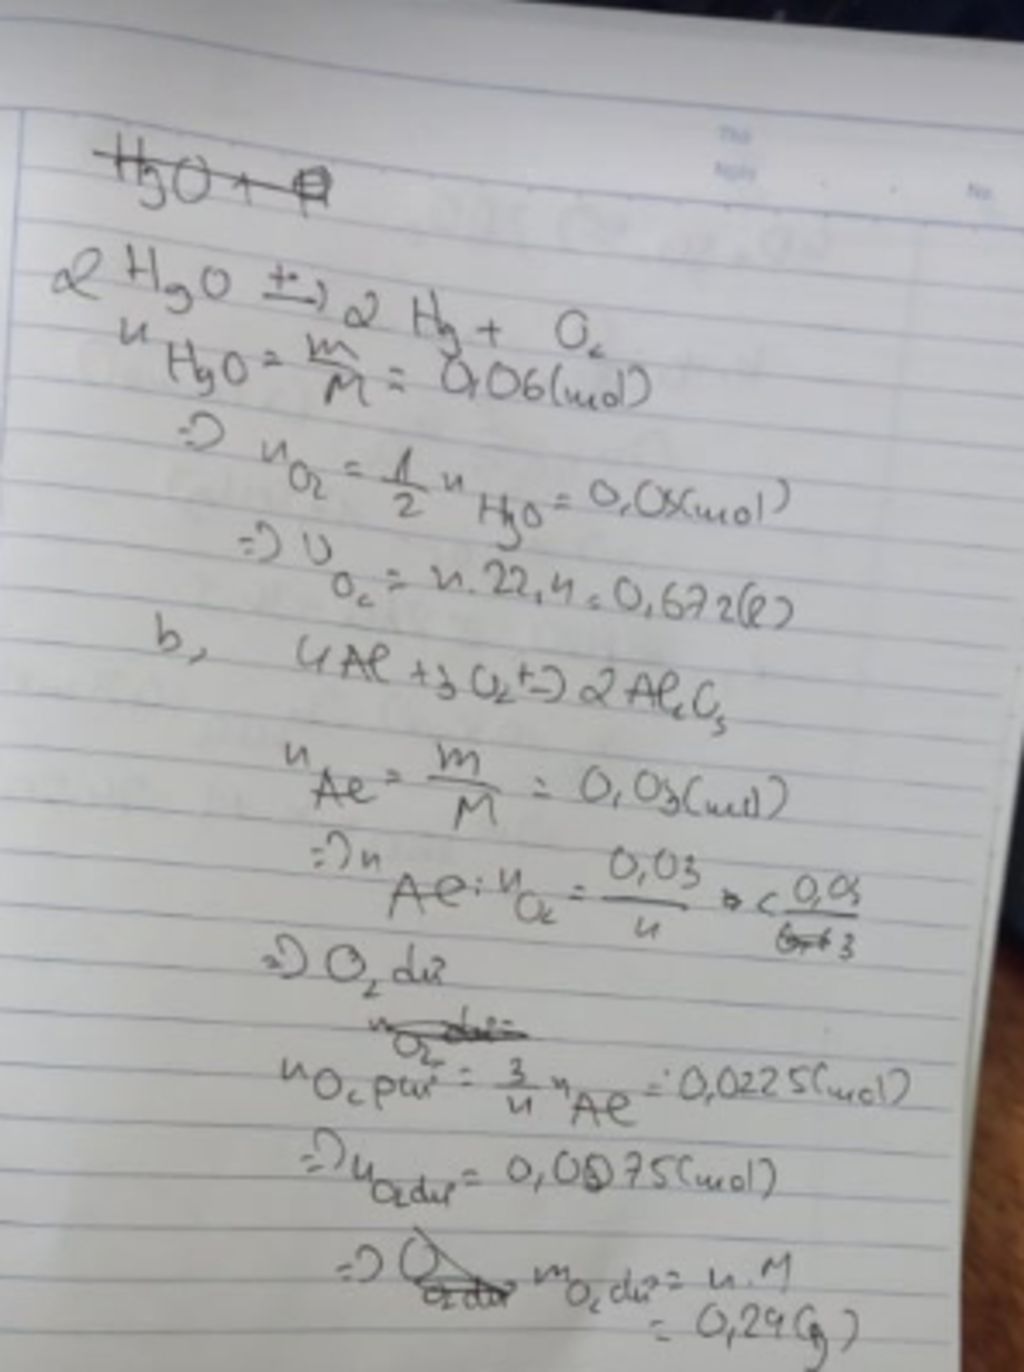 Thứ
Ngày
No.
HgO +
2 HgO t°→ 2 Hg + O₂
n HgO = m/M = 0,06(mol)
=> n O₂ = 1/2 n HgO = 0,03(mol)
=> V O₂ = n.22,4 = 0,672(l)
b, 4Al + 3O₂ t°→ 2Al₂O₃
n Al = m/M = 0,03(mol)
=> n Al : n O₂ = 0,03/4 < 0,03/3
=> O₂ dư
n O₂ dư =
n O₂ pư = 3/4 n Al = 0,0225(mol)
=> n O₂ dư = 0,0075(mol)
=> m O₂ dư = n.M
= 0,24(g)